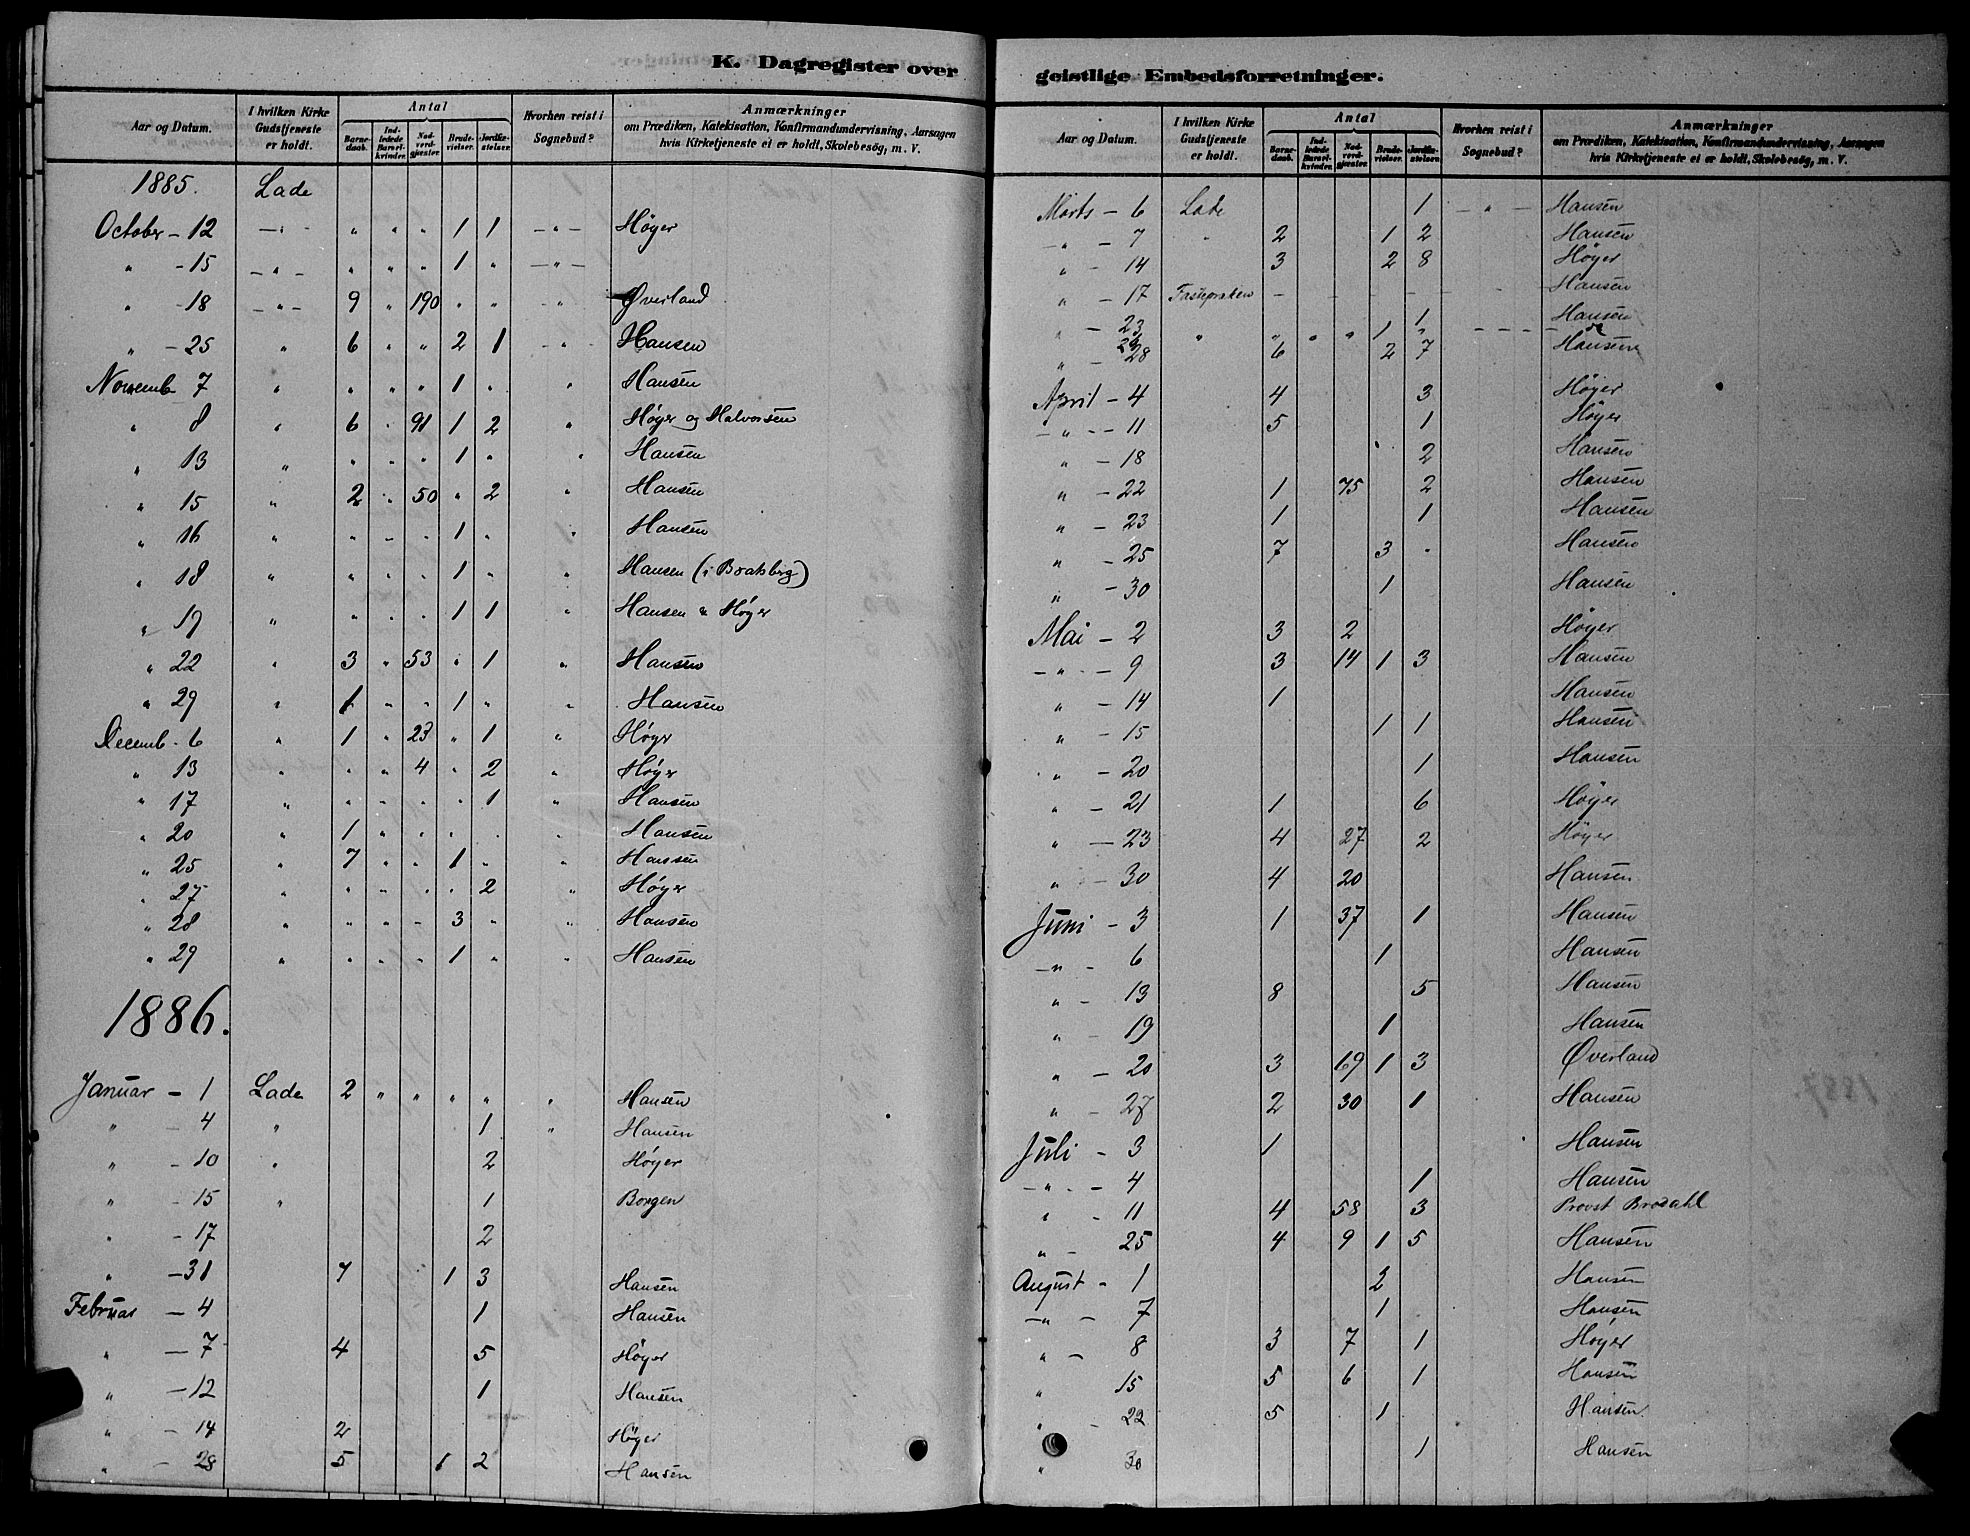 K. Dagregister over
Aar og Datum. I hvilken Kirke Gudstjeneste er holdt. Antal Barnedaab. Indledede Barselkvinder. Nadverdgjester. Brudevielser. Jordfæstelser. Hvorhen reist i Sognebud? Anmærkninger om Prædiken, Katekisation, Konfirmandundervisning, Aarsagen hvis Kirketjeneste ei er holdt, Skolebesøg, m. V.
1885. Lade
October - 12 - " - " " " 1 1 - " - Høyer
" - 15 - " - " " " 1 " - " -
" - 18 - " - 9 " 190 " " " Øverland
" - 25 " 6 " " 2 1 - " - Hansen
Novemb 7 " " " " 1 " " Hansen
" 8 " 6 " 91 1 2 " Høyer og Halvorsen
" 13 " " " " 1 " " Hansen
" 15 " 2 " 50 " 2 " Hansen
" 16 " " " " 1 " " Hansen
" 18 " " " " 1 " " Hansen (i Bratsberg)
" 19 " " " " 1 1 " Hansen " Høyer
" 22 " 3 " 53 " 1 " Hansen
" 29 " 1 " " 1 " " Hansen
Decemb. 6 " 1 " 23 " 1 " Høyr
" 13 " " " 4 " 2 " Høyer
" 17 " " " " " 1 " Hansen
" 20 " 1 " " " " " Hansen
" 25 " 7 " " 1 " " Hansen
" 27 " " " " " 2 " Høyer
" 28 " " " " 3 " " Hansen
" 29 " " " " 1 " " Hansen
1886.
Januar - 1 Lade 2 " " " " " Hansen
" - 4 " 1 " Hansen
" - 10 " 2 Høyer
" - 15 " 1 Borgen
" - 17 2
" - 31 7 1 3 Hansen
Februar - 4 1 Hansen
" - 7 4 5 Høyer
" - 12 1 Hansen
" - 14 2 Høyer
" - 28 5 1 2 Hansen
geistlige Embedsforretninger.
Aar og Datum. I hvilken Kirke Gudstjeneste er holdt. Antal Barnedaab. Indledede Barselkvinder. Nadverdgjester. Brudevielser. Jordfæstelser. Hvorhen reist i Sognebud? Anmærkninger om Prædiken, Katekisation, Konfirmandundervisning, Aarsagen hvis Kirketjeneste ei er holdt, Skolebesøg, m. V.
Marts - 6 Lade 1 - " - Hansen
- " - 7 " 2 1 2 Hansen
" - 14 3 2 8 Høyer
" - 17 - - - - - - Hansen
" - 23 1 Hansen
" " " " 1 "
" - 28 6 2 7 Hansen
April - 4 4 3 Høyer
- " - 11 5 1 Høyer
" - 18 2 Hansen
" - 22 1 75 2 Hansen
" - 23 1 1 Hansen
" - 25 7 3 Hansen
" - 30 1 Hansen
Mai - 2 3 2 Høyer
- " - 9 3 14 1 3 Hansen
" - 14 1 Hansen
" - 15 1 1 Hansen
" - 20 1 Hansen
" - 21 1 6 Høyer
" - 23 4 27 2 Høyer
" - 30 4 20 Hansen
Juni - 3 1 37 1 Hansen
- " - 6 1 Hansen
" - 13 8 5 Hansen
" - 19 1 Hansen
" - 20 3 19 1 3 Øverland
" - 27 2 30 1 Hansen
Juli - 3 1 Hansen
- " - 4 1 Hansen
" - 11 4 58 3 Provst Brodahl
" - 25 4 9 1 5 Hansen
August - 1 2 Hansen
- " - 7 1 Hansen
" - 8 3 7 1 Høyer
" 15 5 6 1 Hansen
" - 22 5 1 Hansen
" 30 1 Hansen